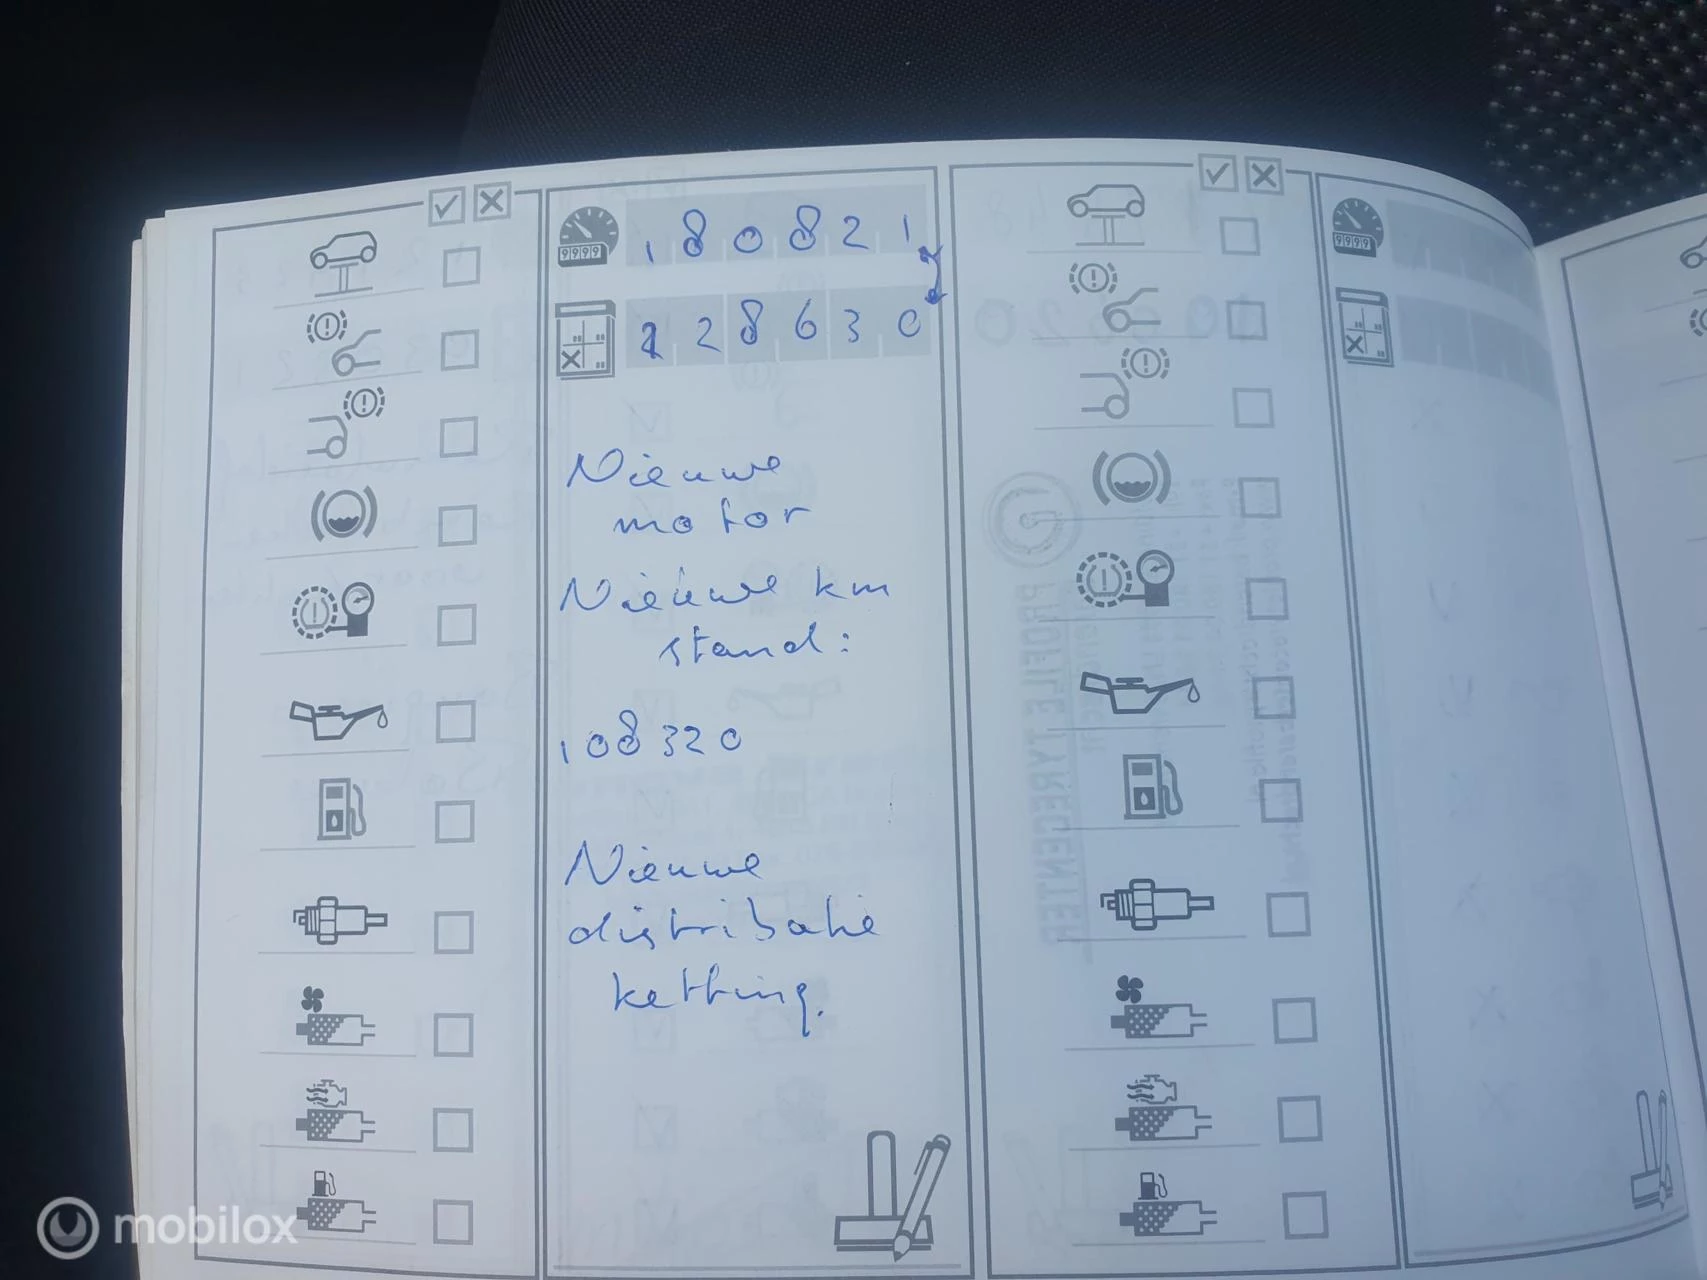 180821
128630
Nieuwe
motor
Nieuwe km
stand:
108320
Nieuwe
distributie
ketting.
PROFILE TYRECENTER
mobilox